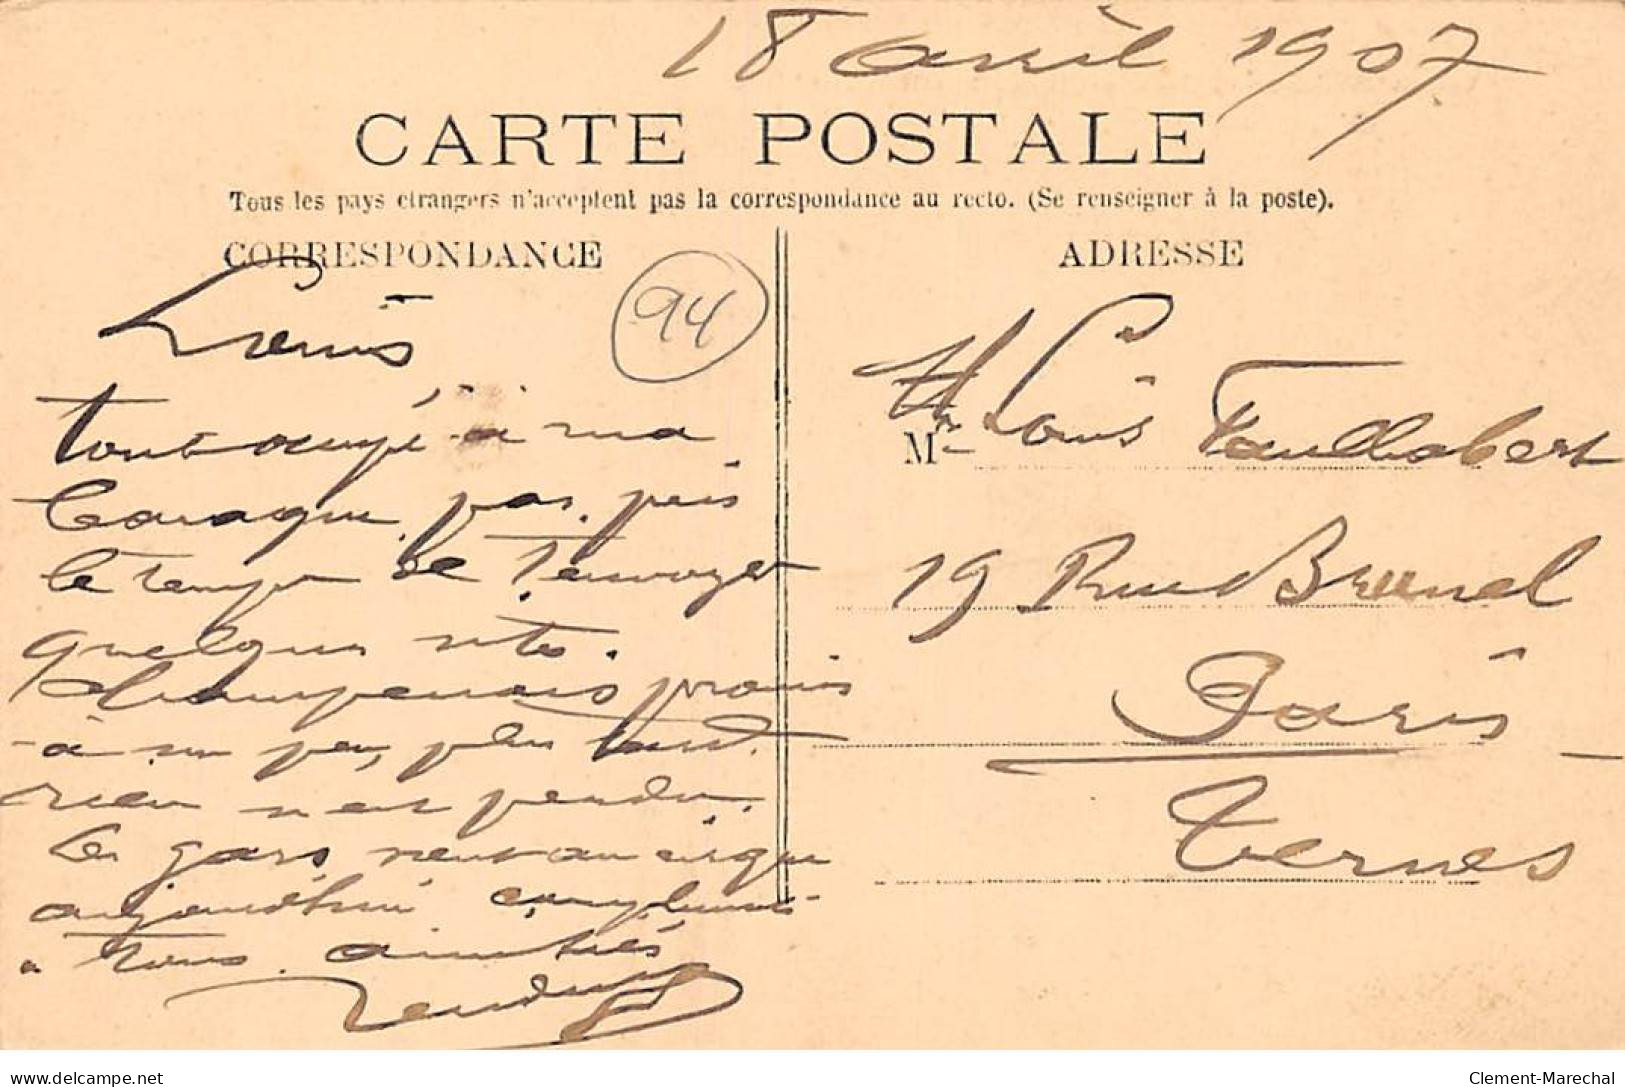 18 avril 1907
CARTE POSTALE
Tous les pays étrangers n'acceptent pas la correspondance au recto. (Se renseigner à la poste).
CORRESPONDANCE
94
Louis
tout occupé à ma
baraque pas pris
le temps de t'envoyer
quelques
à un peu plus tard.
rien n'est perdu.
Les gars vont au cirque
aujourd'hui compliments
à tous. amitiés
ADRESSE
M Louis
M
19 Rue Brunel
Paris
Ternes
delcampe.net
Clement-Marechal